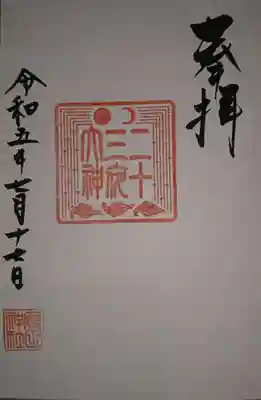 奉拝
二十
三夜
大神
令和五年七月十七日